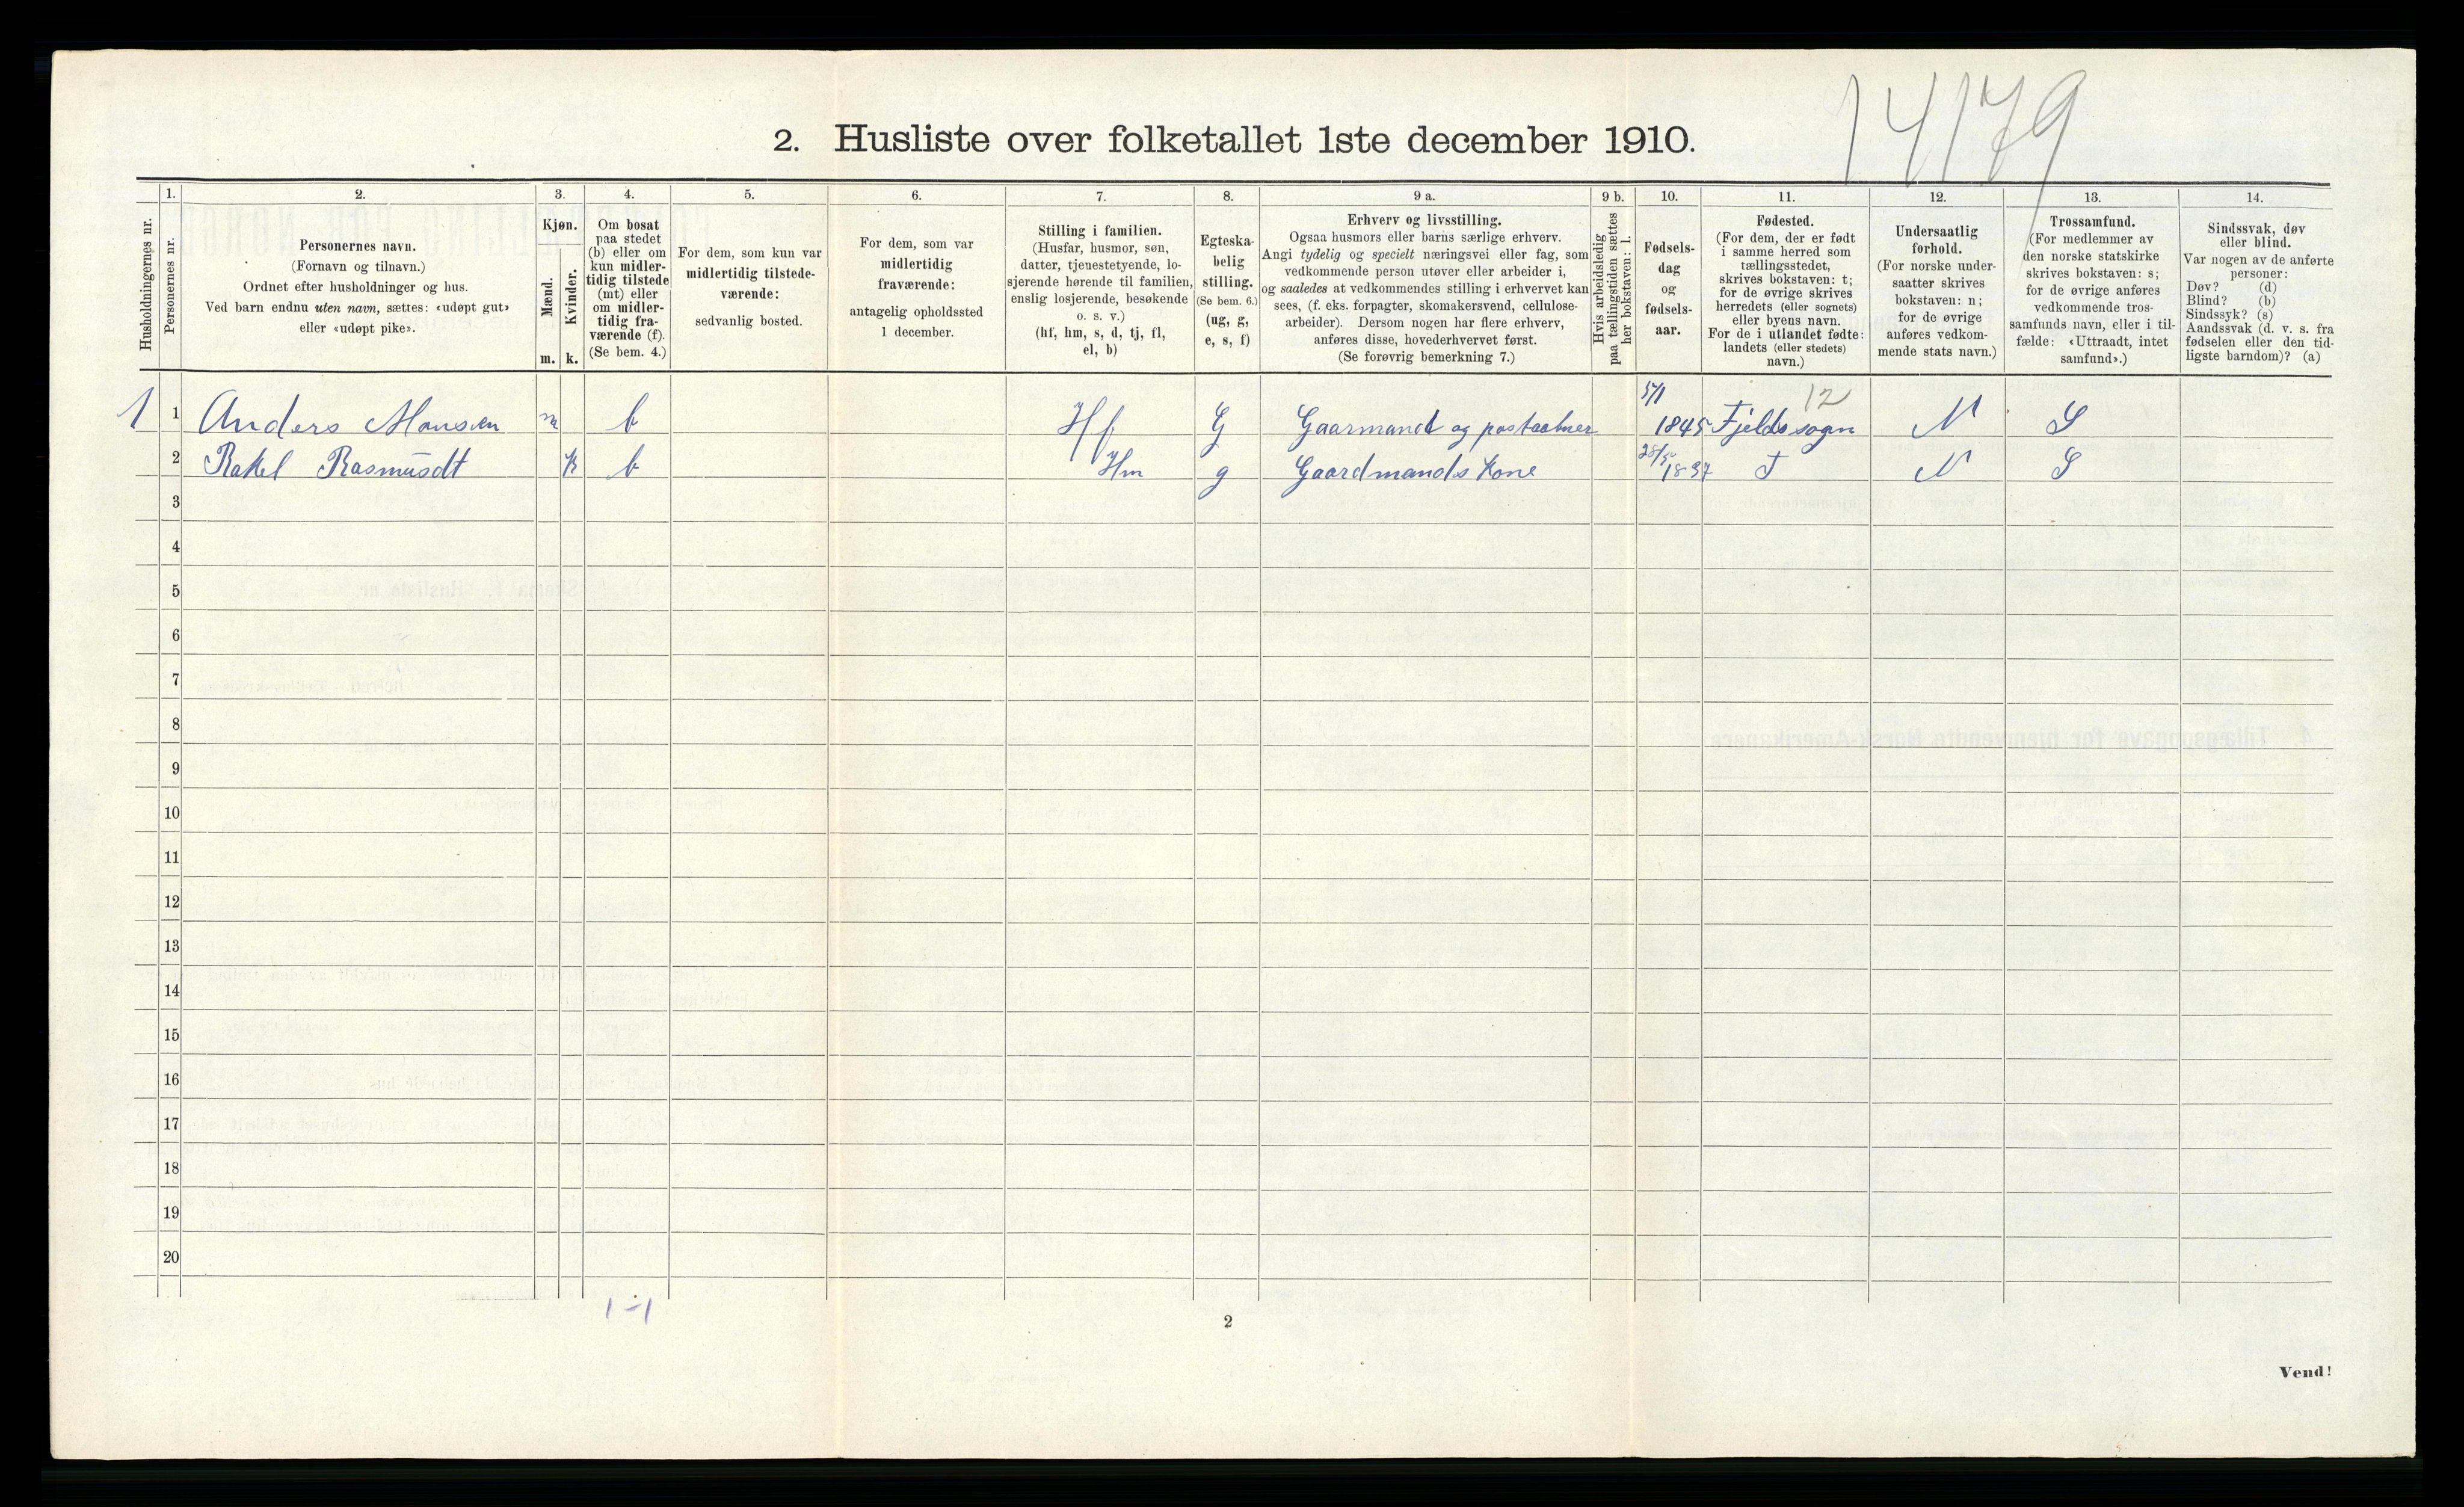 14179
2. Husliste over folketallet 1ste december 1910.
Husholdningernes nr.
1.
Personernes nr.
2.
Personernes navn.
(Fornavn og tilnavn.)
Ordnet efter husholdninger og hus.
Ved barn endnu uten navn, sættes: «udøpt gut»
eller «udøpt pike».
3.
Kjøn.
Mænd.
Kvinder.
m. k.
4.
Om bosat
paa stedet
(b) eller om
kun midler-
tidig tilstede
(mt) eller
om midler-
tidig fra-
værende (f).
(Se bem. 4.)
5.
For dem, som kun var
midlertidig tilstede-
værende:
sedvanlig bosted.
6.
For dem, som var
midlertidig
fraværende:
antagelig opholdssted
1 december.
7.
Stilling i familien.
(Husfar, husmor, søn,
datter, tjenestetyende, lo-
sjerende hørende til familien,
enslig losjerende, besøkende
o. s. v.)
(hf, hm, s, d, tj, fl,
el, b)
8.
Egteska-
belig
stilling.
(Se bem. 6.)
(ug, g,
e, s, f)
9 a.
Erhverv og livsstilling.
Ogsaa husmors eller barns særlige erhverv.
Angi tydelig og specielt næringsvei eller fag, som
vedkommende person utøver eller arbeider i,
og saaledes at vedkommendes stilling i erhvervet kan
sees, (f. eks. forpagter, skomakersvend, cellulose-
arbeider). Dersom nogen har flere erhverv,
anføres disse, hovederhvervet først.
(Se forøvrig bemerkning 7.)
9 b.
Hvis arbeidsledig
paa tællingstiden sættes
her bokstaven: l.
10.
Fødsels-
dag
og
fødsels-
aar.
11.
Fødested.
(For dem, der er født
i samme herred som
tællingsstedet,
skrives bokstaven: t;
for de øvrige skrives
herredets (eller sognets)
eller byens navn.
For de i utlandet fødte:
landets (eller stedets)
navn.)
12.
Undersaatlig
forhold.
(For norske under-
saatter skrives
bokstaven: n;
for de øvrige
anføres vedkom-
mende stats navn.)
13.
Trossamfund.
(For medlemmer av
den norske statskirke
skrives bokstaven: s;
for de øvrige anføres
vedkommende tros-
samfunds navn, eller i til-
fælde: «Uttraadt, intet
samfund».)
14.
Sindssvak, døv
eller blind.
Var nogen av de anførte
personer:
Døv? (d)
Blind? (b)
Sindssyk? (s)
Aandssvak (d. v. s. fra
fødselen eller den tid-
ligste barndom)? (a)
1 1 Anders Monsen m b Hf G Gaarmand og postaabner 5/1 1845 Fjelds sogn 12 N S
2 Rakel Rasmusdt k b Hm g Gaardmands Kone 1837 T N S
3
4
5
6
7
8
9
10
11
12
13
14
15
16
17
18
19
20
1-1
2
Vend!